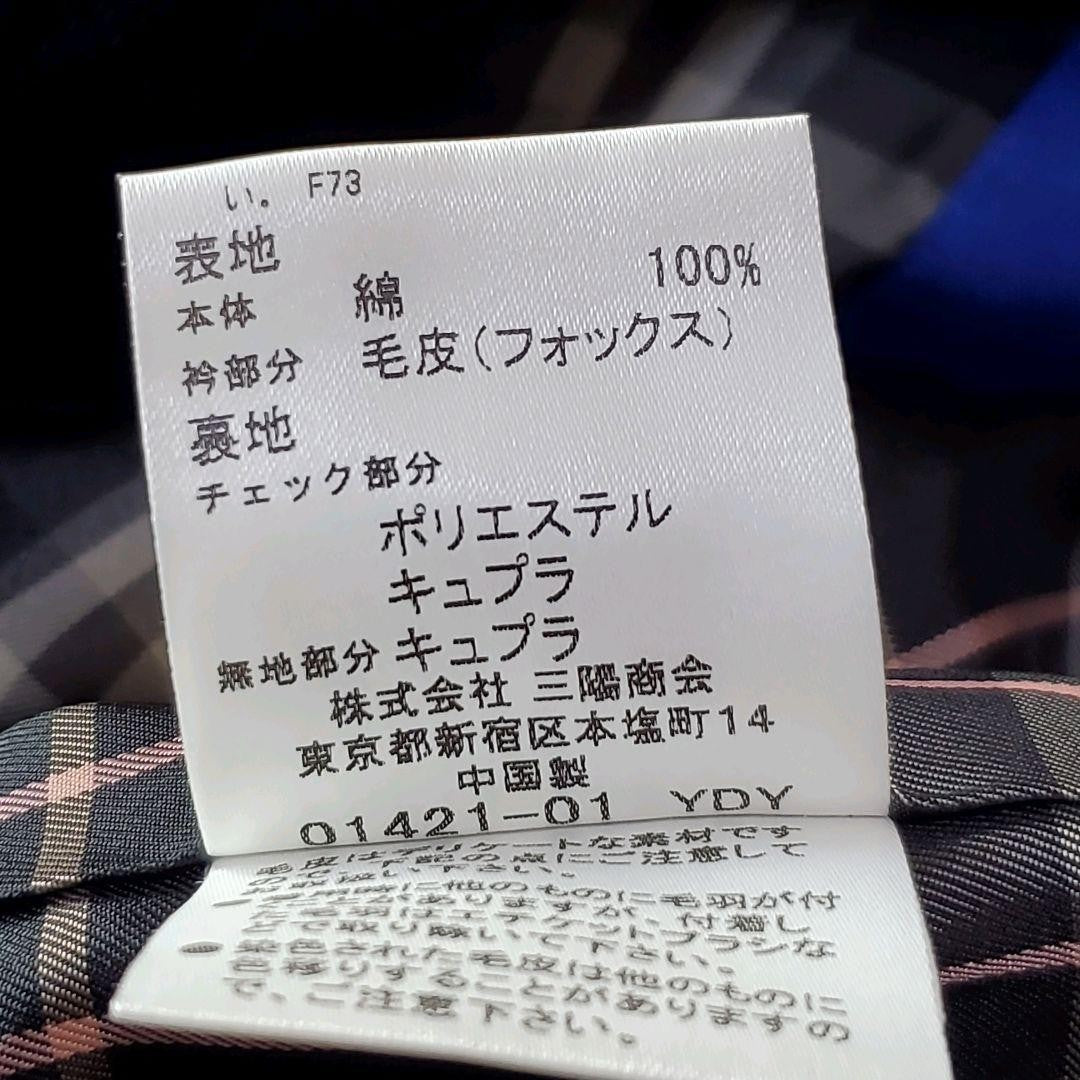 い。 F73
表地
本体 綿 100%
衿部分 毛皮(フォックス)
裏地
チェック部分
ポリエステル
キュプラ
無地部分 キュプラ
株式会社 三陽商会
東京都新宿区本塩町14
中国製
01421-01 YDY
毛皮はデリケートな素材です
ので、下記の点にご注意して
お取扱い下さい。
に他のものに毛羽が付
くことがありますが、付着し
た毛羽はエチケットブラシな
どで取り除いて下さい。
● 染色された毛皮は他のものに
色移りすることがありますの
で、ご注意下さい。